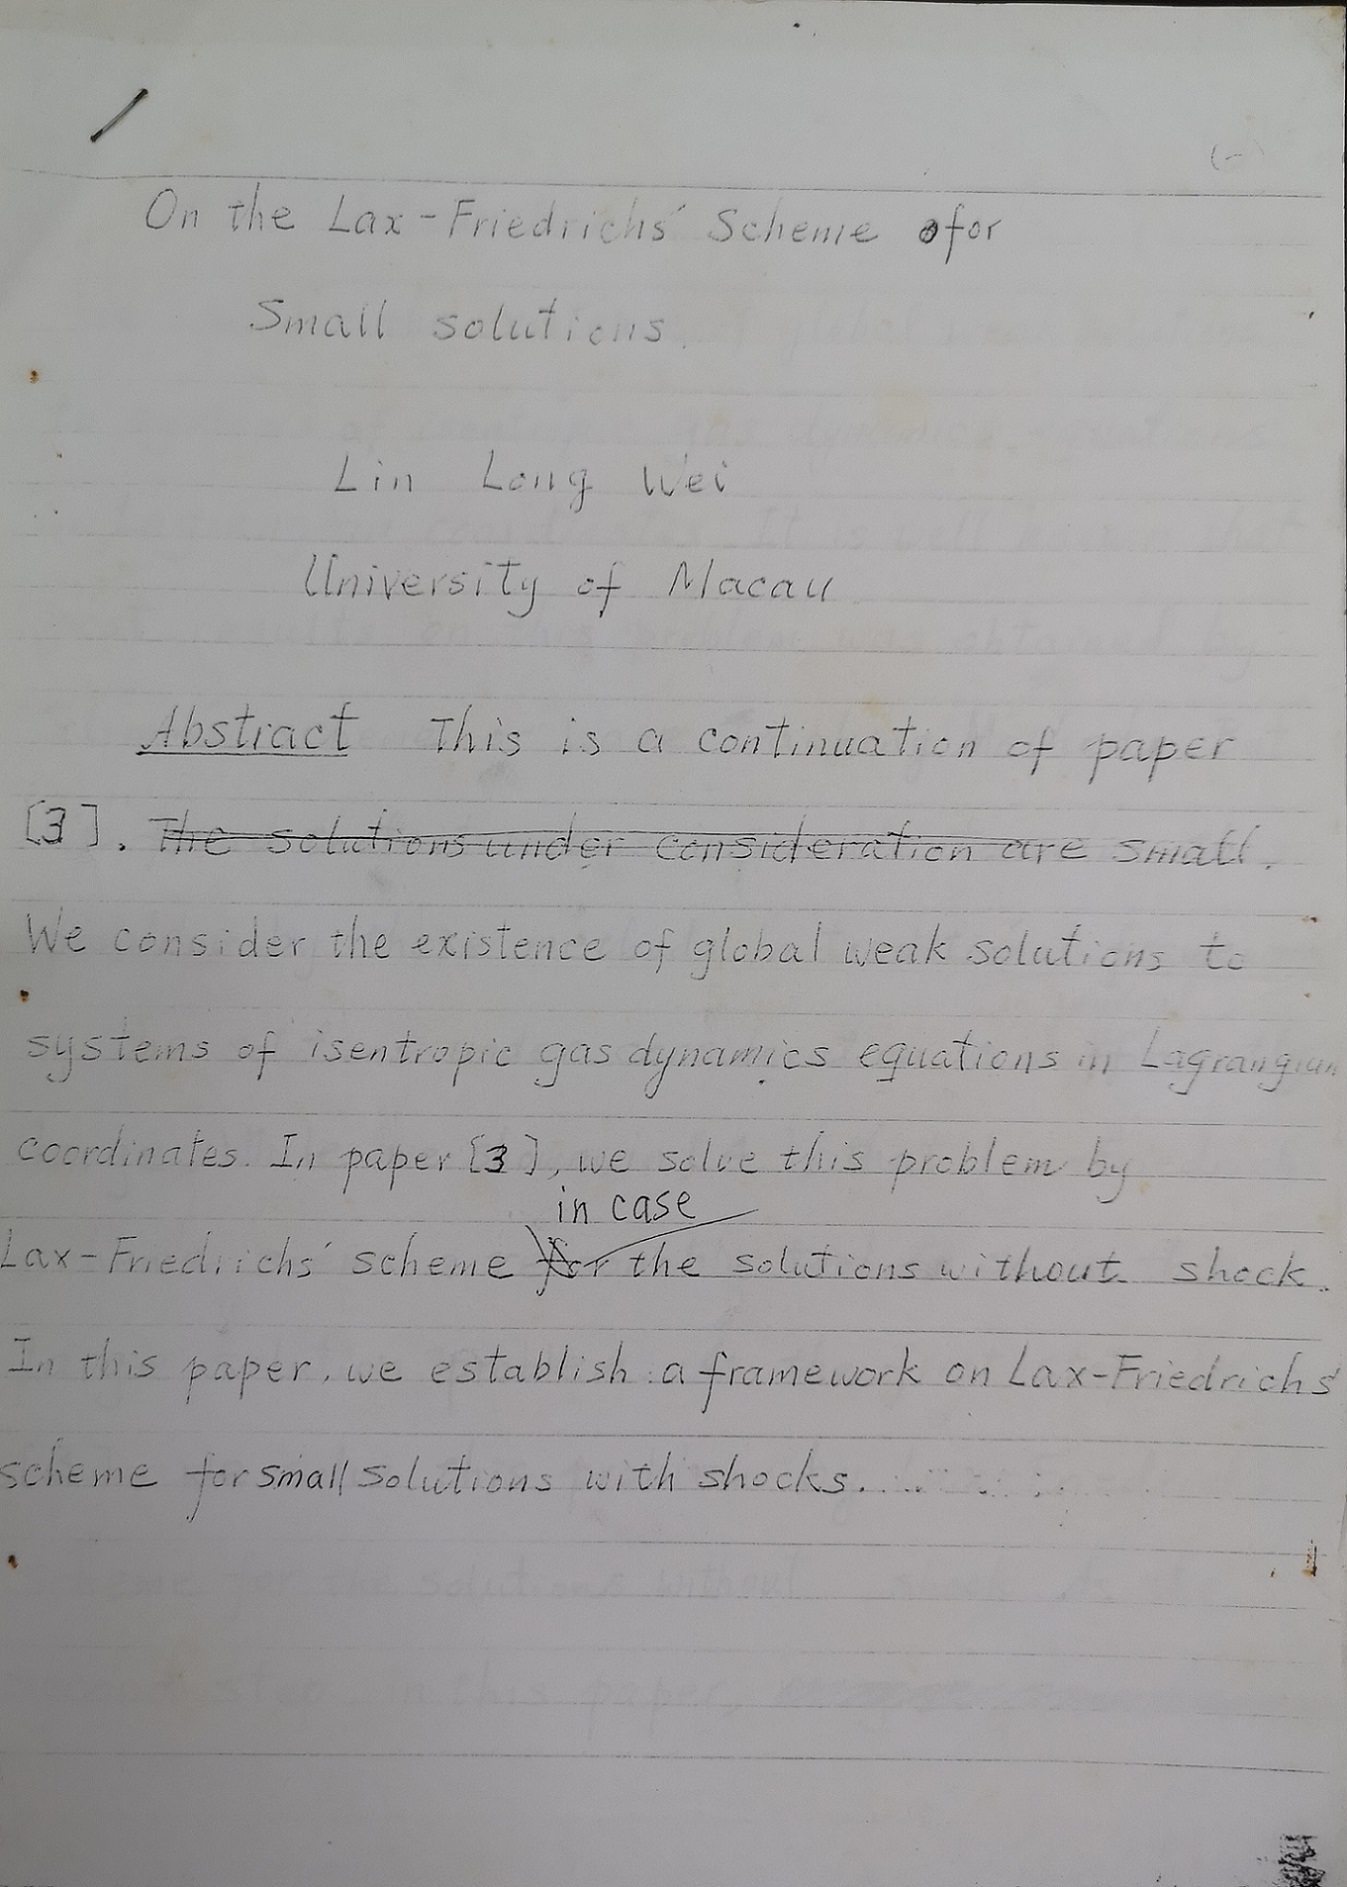 On the Lax-Friedrichs' Scheme for
Small solutions.
Lin Long Wei
University of Macau
Abstract This is a continuation of paper
[3]. The solutions under consideration are small.
We consider the existence of global weak solutions to
systems of isentropic gas dynamics equations in Lagrangian
coordinates. In paper [3], we solve this problem by
in case
Lax-Friedrichs' scheme for the solutions without shock.
In this paper, we establish a framework on Lax-Friedrichs'
scheme for small solutions with shocks.